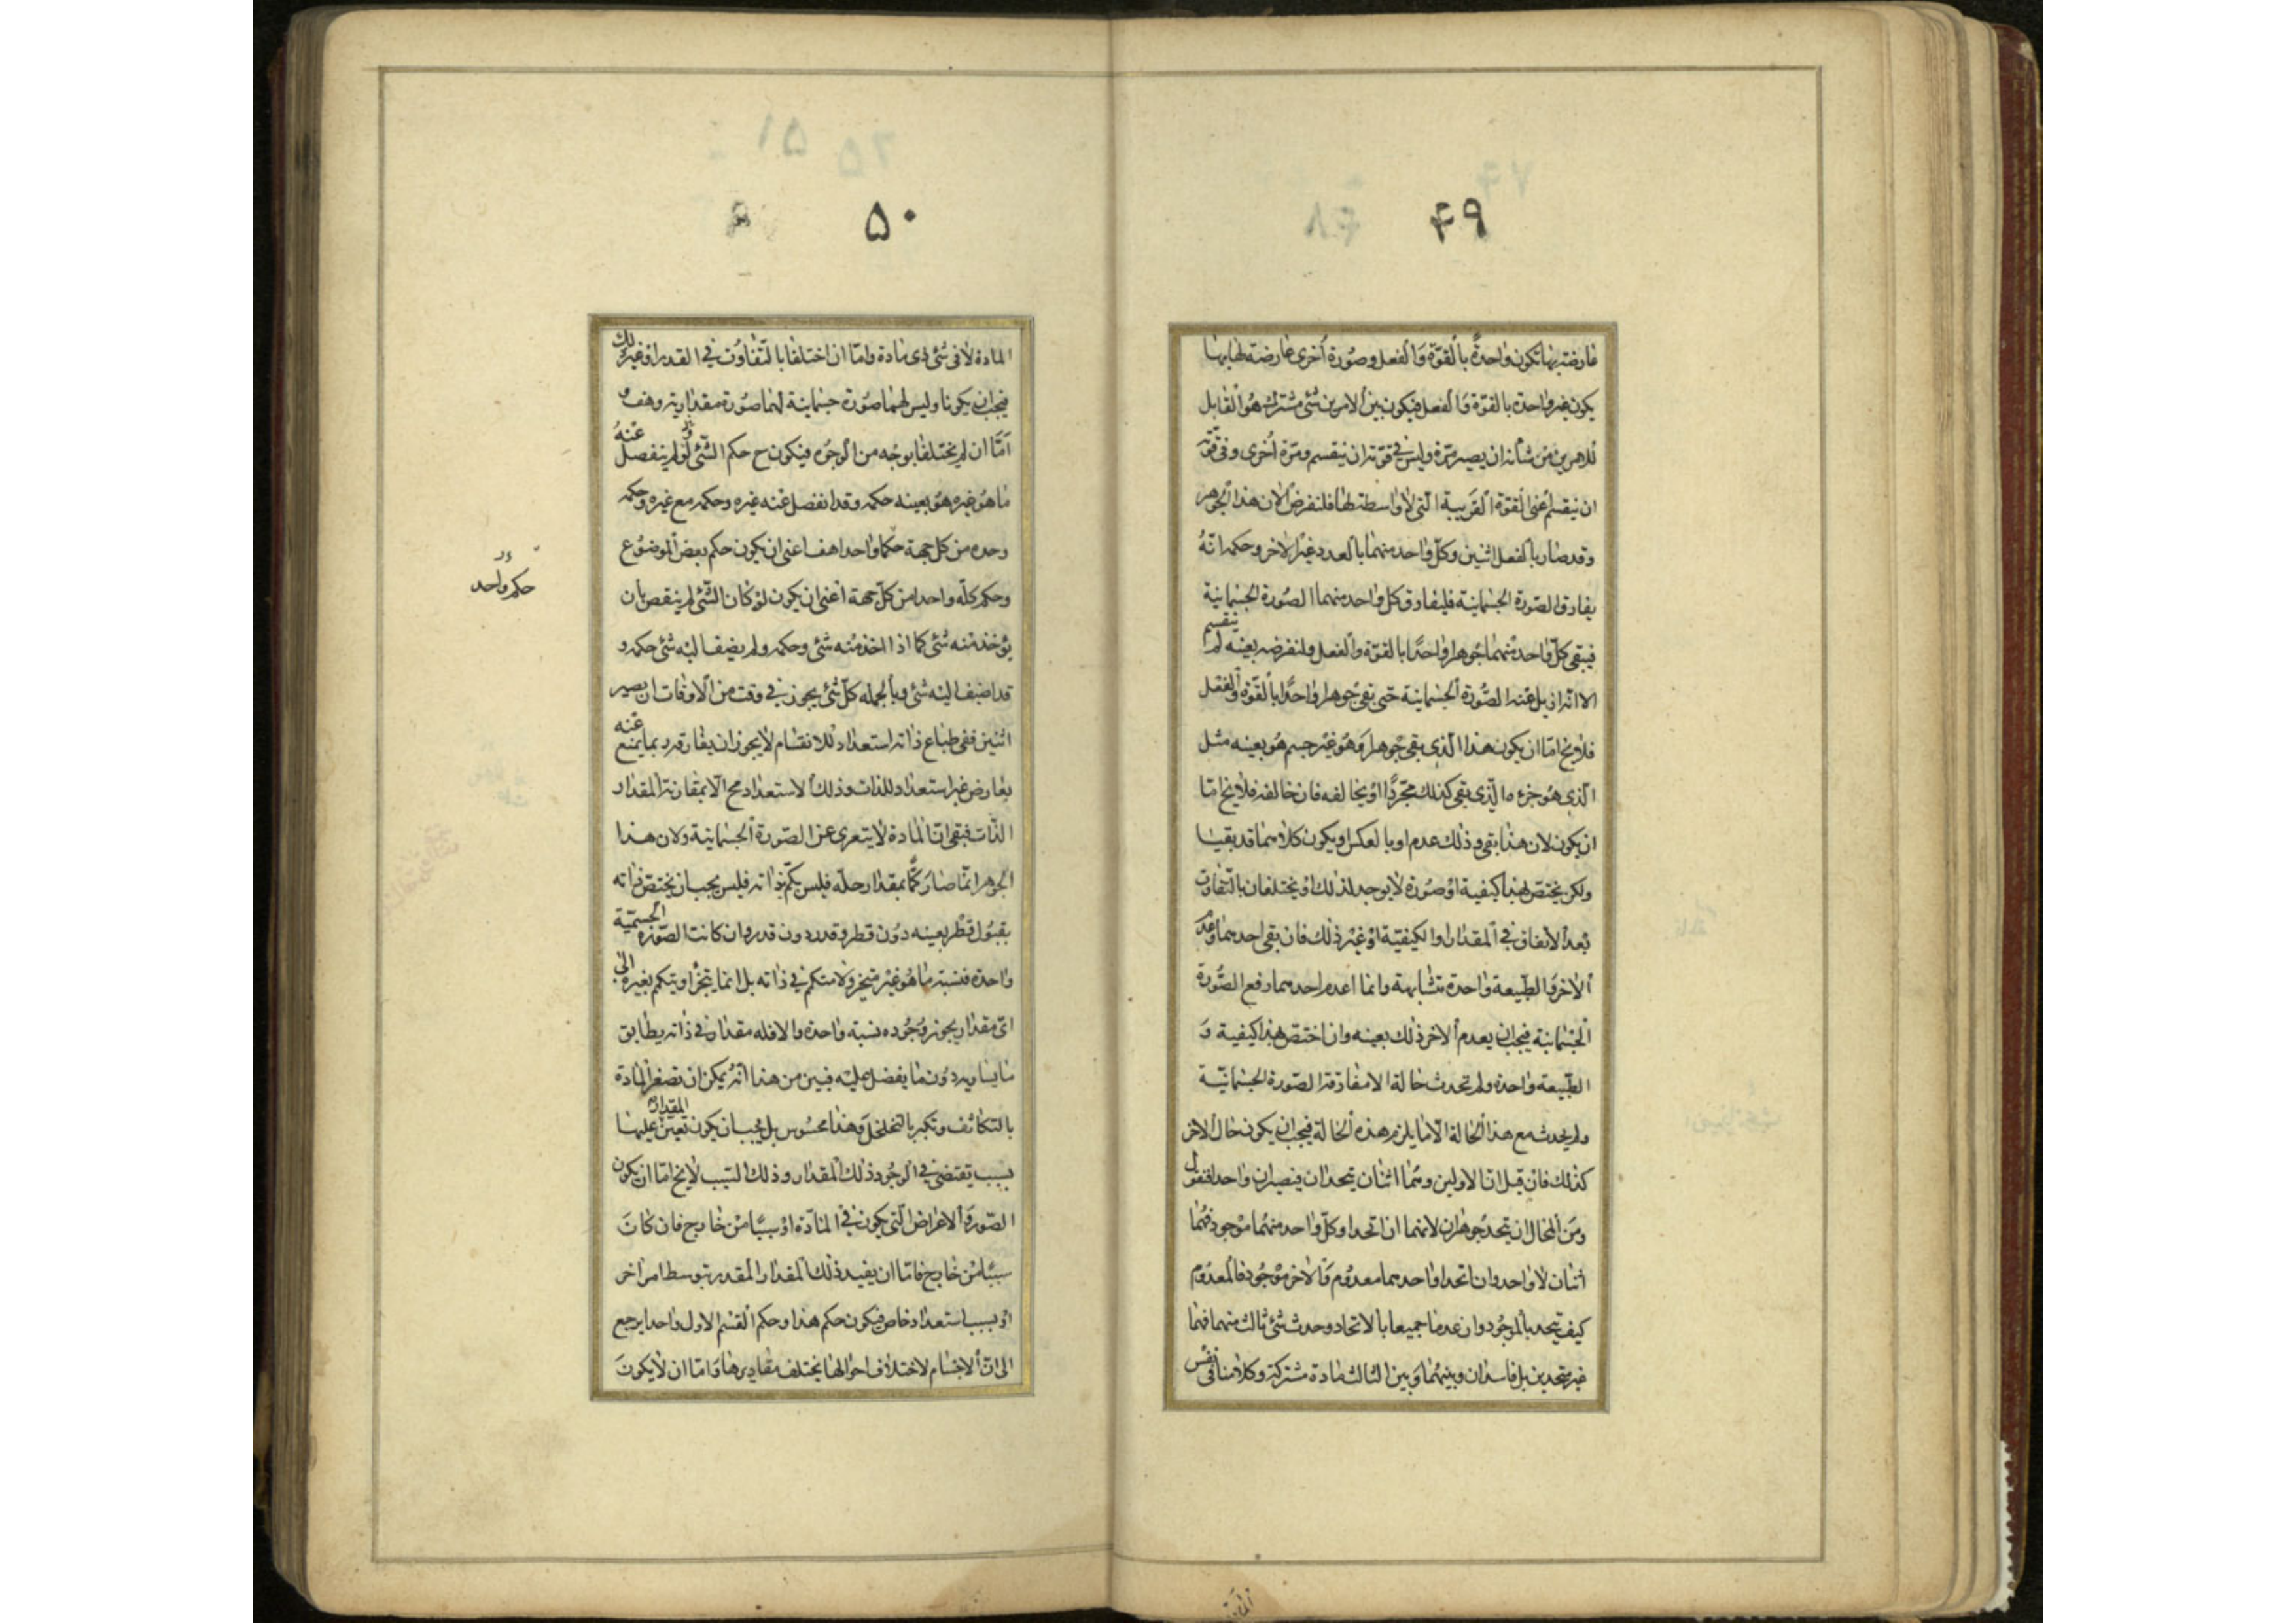 ۴۹
عارضة بها تكون واحدةً بالقوّة والفعل وصورة أخرى عارضة لها بها
يكون غير واحدة بالقوّة والفعل فيكون بين الامرين شئ مشترك هو القابل
للامرين من شأنه ان يصير مرّة وليس في قوّته ان ينقسم ومرّة أخرى وفي قوّته
ان ينقسم اعنى القوّة القريبة الّتى لا واسطة لها فلنفرض الان هذا الجوهر
وقد صار بالفعل اثنين وكلّ واحد منهما بالعدد غير الاخر وحكمه انّه
يفارق الصّورة الجسمانيّة فليفارق كل واحد منهما الصّورة الجسمانية
فيبقى كلّ واحد منهما جوهرا واحدًا بالقوّة والفعل ولنفرضه بعينه لم ينقسم
الا انّه ازيل عنه الصّورة الجسمانية حتى بقى جوهرا واحدًا بالقوّة والفعل
فلايخ امّا ان يكون هذا الّذى بقى جوهرا وهو غير جسم هو بعينه مثل
الّذى هو جزءه الّذى بقى كذلك مجرّدًا او يخالفه فان خالفه فلايخ امّا
ان يكون لان هذا بقى وذلك عدم او بالعكس او يكون كلاهما قد بقيا
ولكن يختصّ لهذا كيفية او صورة لا يوجد لذلك او يختلفان بالتّفاوت
بعد الاتفاق في المقدار او الكيفيّة او غير ذلك فان بقى احدهما وعدم
الاخر والطّبيعة واحدة متشابهة وانما اعدم احدهما رفع الصّورة
الجسمانية فيجب ان يعدم الاخر ذلك بعينه وان اختصّ بهذا كيفية و
الطّبيعة واحدة ولم تحدث حالة الا مفارقة الصّورة الجسمانيّة
ولم يحدث مع هذا الحالة الّا ما يلزم هذه الحالة فيجب ان يكون حال الاخر
كذلك فان قيل انّ الاولين وهما اثنان يتحدان فيصيران واحدا فنقول
ومن المحال ان يتحد جوهران لانهما ان اتحدا وكلّ واحد منهما موجود فهما
اثنان لا واحد وان اتحدا واحدهما معدوم والاخر موجود فالمعدوم
كيف يتحد بالموجود وان عدما جميعا بالاتحاد وحدث شئ ثالث منهما فهما
غير متحدين بل فاسدان وبينهما وبين الثالث مادة مشتركة وكلامنا في نفس
۵۰
المادة لا في شئ ذى مادة وامّا ان اختلفا بالتّفاوت في القدر او غير ذلك
فيجب ان يكونا وليس لهما صورة جسمانية لهما صورة مقدارية وهف و
امّا ان لم يختلفا بوجه من الوجوه فيكون ح حكم الشّئ لو لم ينفصل عنه
ما هو غيره هو بعينه حكمه وقد انفصل عنه غيره وحكمه مع غيره وحكمه
وحده من كل جهة حكما واحدا هف اعنى ان يكون حكم بعض الموضوع
وحكم كلّه واحدا من كلّ جهة اعنى ان يكون لو كان الشّئ لم ينقص بان
يؤخذ منه شئ كما اذا اخذ منه شئ وحكمه ولم يضف اليه شئ حكمه و
قد اضيف اليه شئ وبالجمله كلّ شئ يجوز في وقت من الاوقات ان يصير
اثنين ففى طباع ذاته استعداد للانقسام لا يجوز ان يفارقه ربما يمنع عنه
بعارض غير استعداد للذات وذلك الاستعداد مح الّا بمقارنة المقدار
الذّات فبقى انّ المادة لا يتعرى عن الصّورة الجسمانية ولان هذا
الجوهر انّما صار كمًّا بمقدار حلّه فليس بكمّ بذاته فليس يجب ان يختصّ ذاته
بقبول قطر بعينه دون قطر وقدر دون قدر وان كانت الصّورة الجسميّة
واحدة فنسبة ما هو غير متيجز ولا متكم في ذاته بل انما يتجزّا ويتكم بغيره الى
اىّ مقدار يجوز وجوده نسبة واحدة والا فله مقدار في ذاته يطابق
ما يساويه دون ما يفضل عليه فبين من هذا انّه يمكن ان تصغر المادة
بالتكاثف وتكبر بالتخلخل وهذا محسوس بل يجب ان يكون تعين المقدار عليها
بسبب يقتضى في الوجود ذلك المقدار وذلك السّبب لايخ امّا ان يكون
الصّور والاعراض الّتى يكون في المادّة او سببًا من خارج فان كان
سببًا من خارج فامّا ان يفيد ذلك المقدار المقدر بتوسط امر اخر
او بسبب استعداد خاص فيكون حكم هذا وحكم القسم الاول واحدا يرجع
الى انّ الاجسام لاختلاف احوالها يختلف مقاديرها وامّا ان لا يكون
حكم واحد